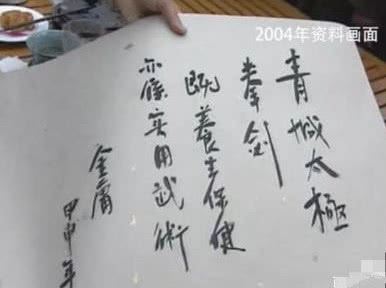 2004年资料画面
青城太極
拳剑
既養生保健
亦係实用武術
金庸
甲申年